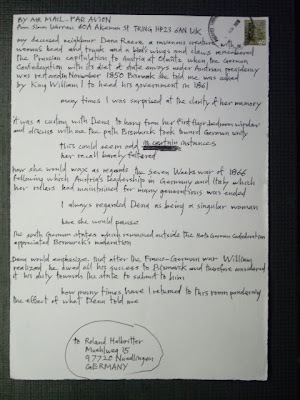 BY AIR MAIL - PAR AVION
From Simon Warren 60A Akeman St TRING HP23 6AN UK
my deceased neighbour Dena Reeve, a ravenous creature with a
womans head and trunk and a bird's wings and claws remembered
The Prussian capitulation to Austria at Olmütz when the German
Confederation with its diet of state envoys under Austrian presidency
was restored in November 1850 Bismarck she told me was asked
by King William I to head his government in 1861
many times I was surprised at the clarity of her memory
it was a custom with Dena to hang from her first floor bedroom window
and discuss with me the path Bismarck took toward German unity
this could seem odd in certain instances
her recall barely faltered
how she would wax as regards the Seven Weeks war of 1866
following which Austria's leadership in Germany and Italy which
her rulers had maintained for many generations was ended
I always regarded Dena as being a singular woman
here she would pause
The south german states which remained outside the North German Confederation
appreciated Bismarck's moderation
Dena would emphasize that after the Franco-German war William
realized he owed all his success to Bismarck and therefore considered
it his duty towards the state to submit to him
how many times have I returned to this room pondering
the effect of what Dena told me
to Roland Halbritter
Muehlweg 15
97720 Nuedlingen
GERMANY